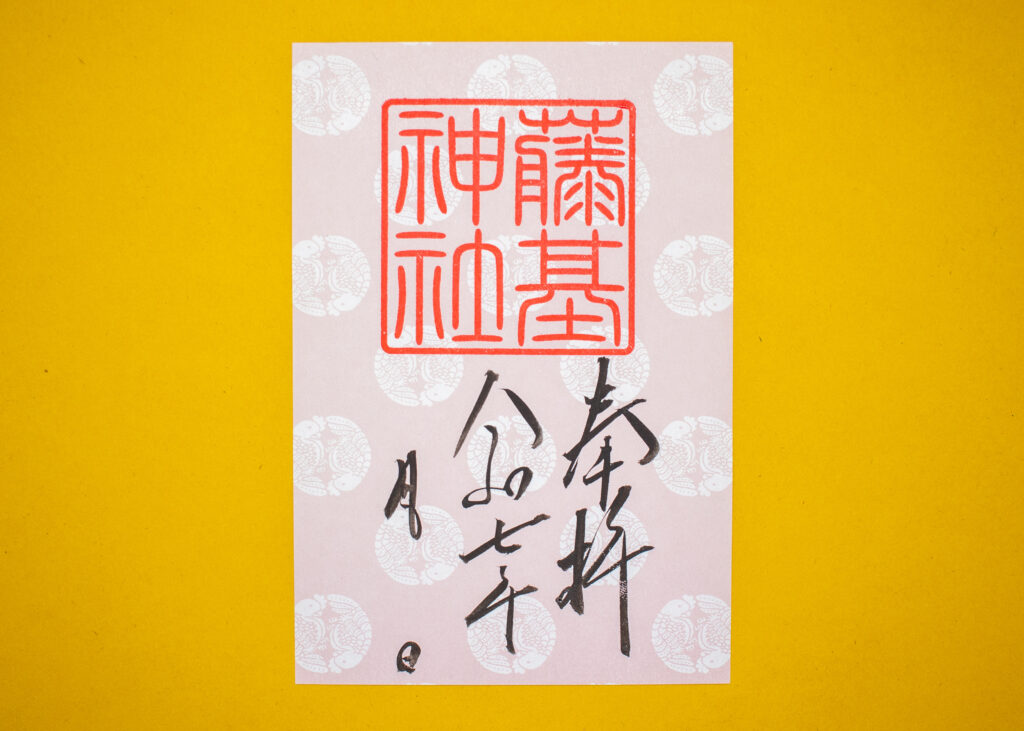 藤基
神社
奉拝
令和七年
月
日